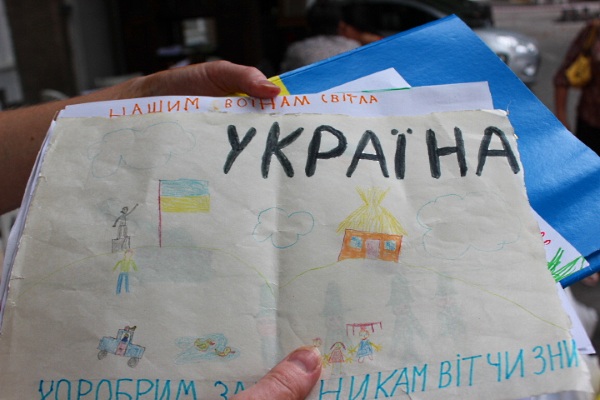 НАШИМ ВОЇНАМ СВІТЛА
УКРАЇНА
ХОРОБРИМ ВІТЧИЗНИ